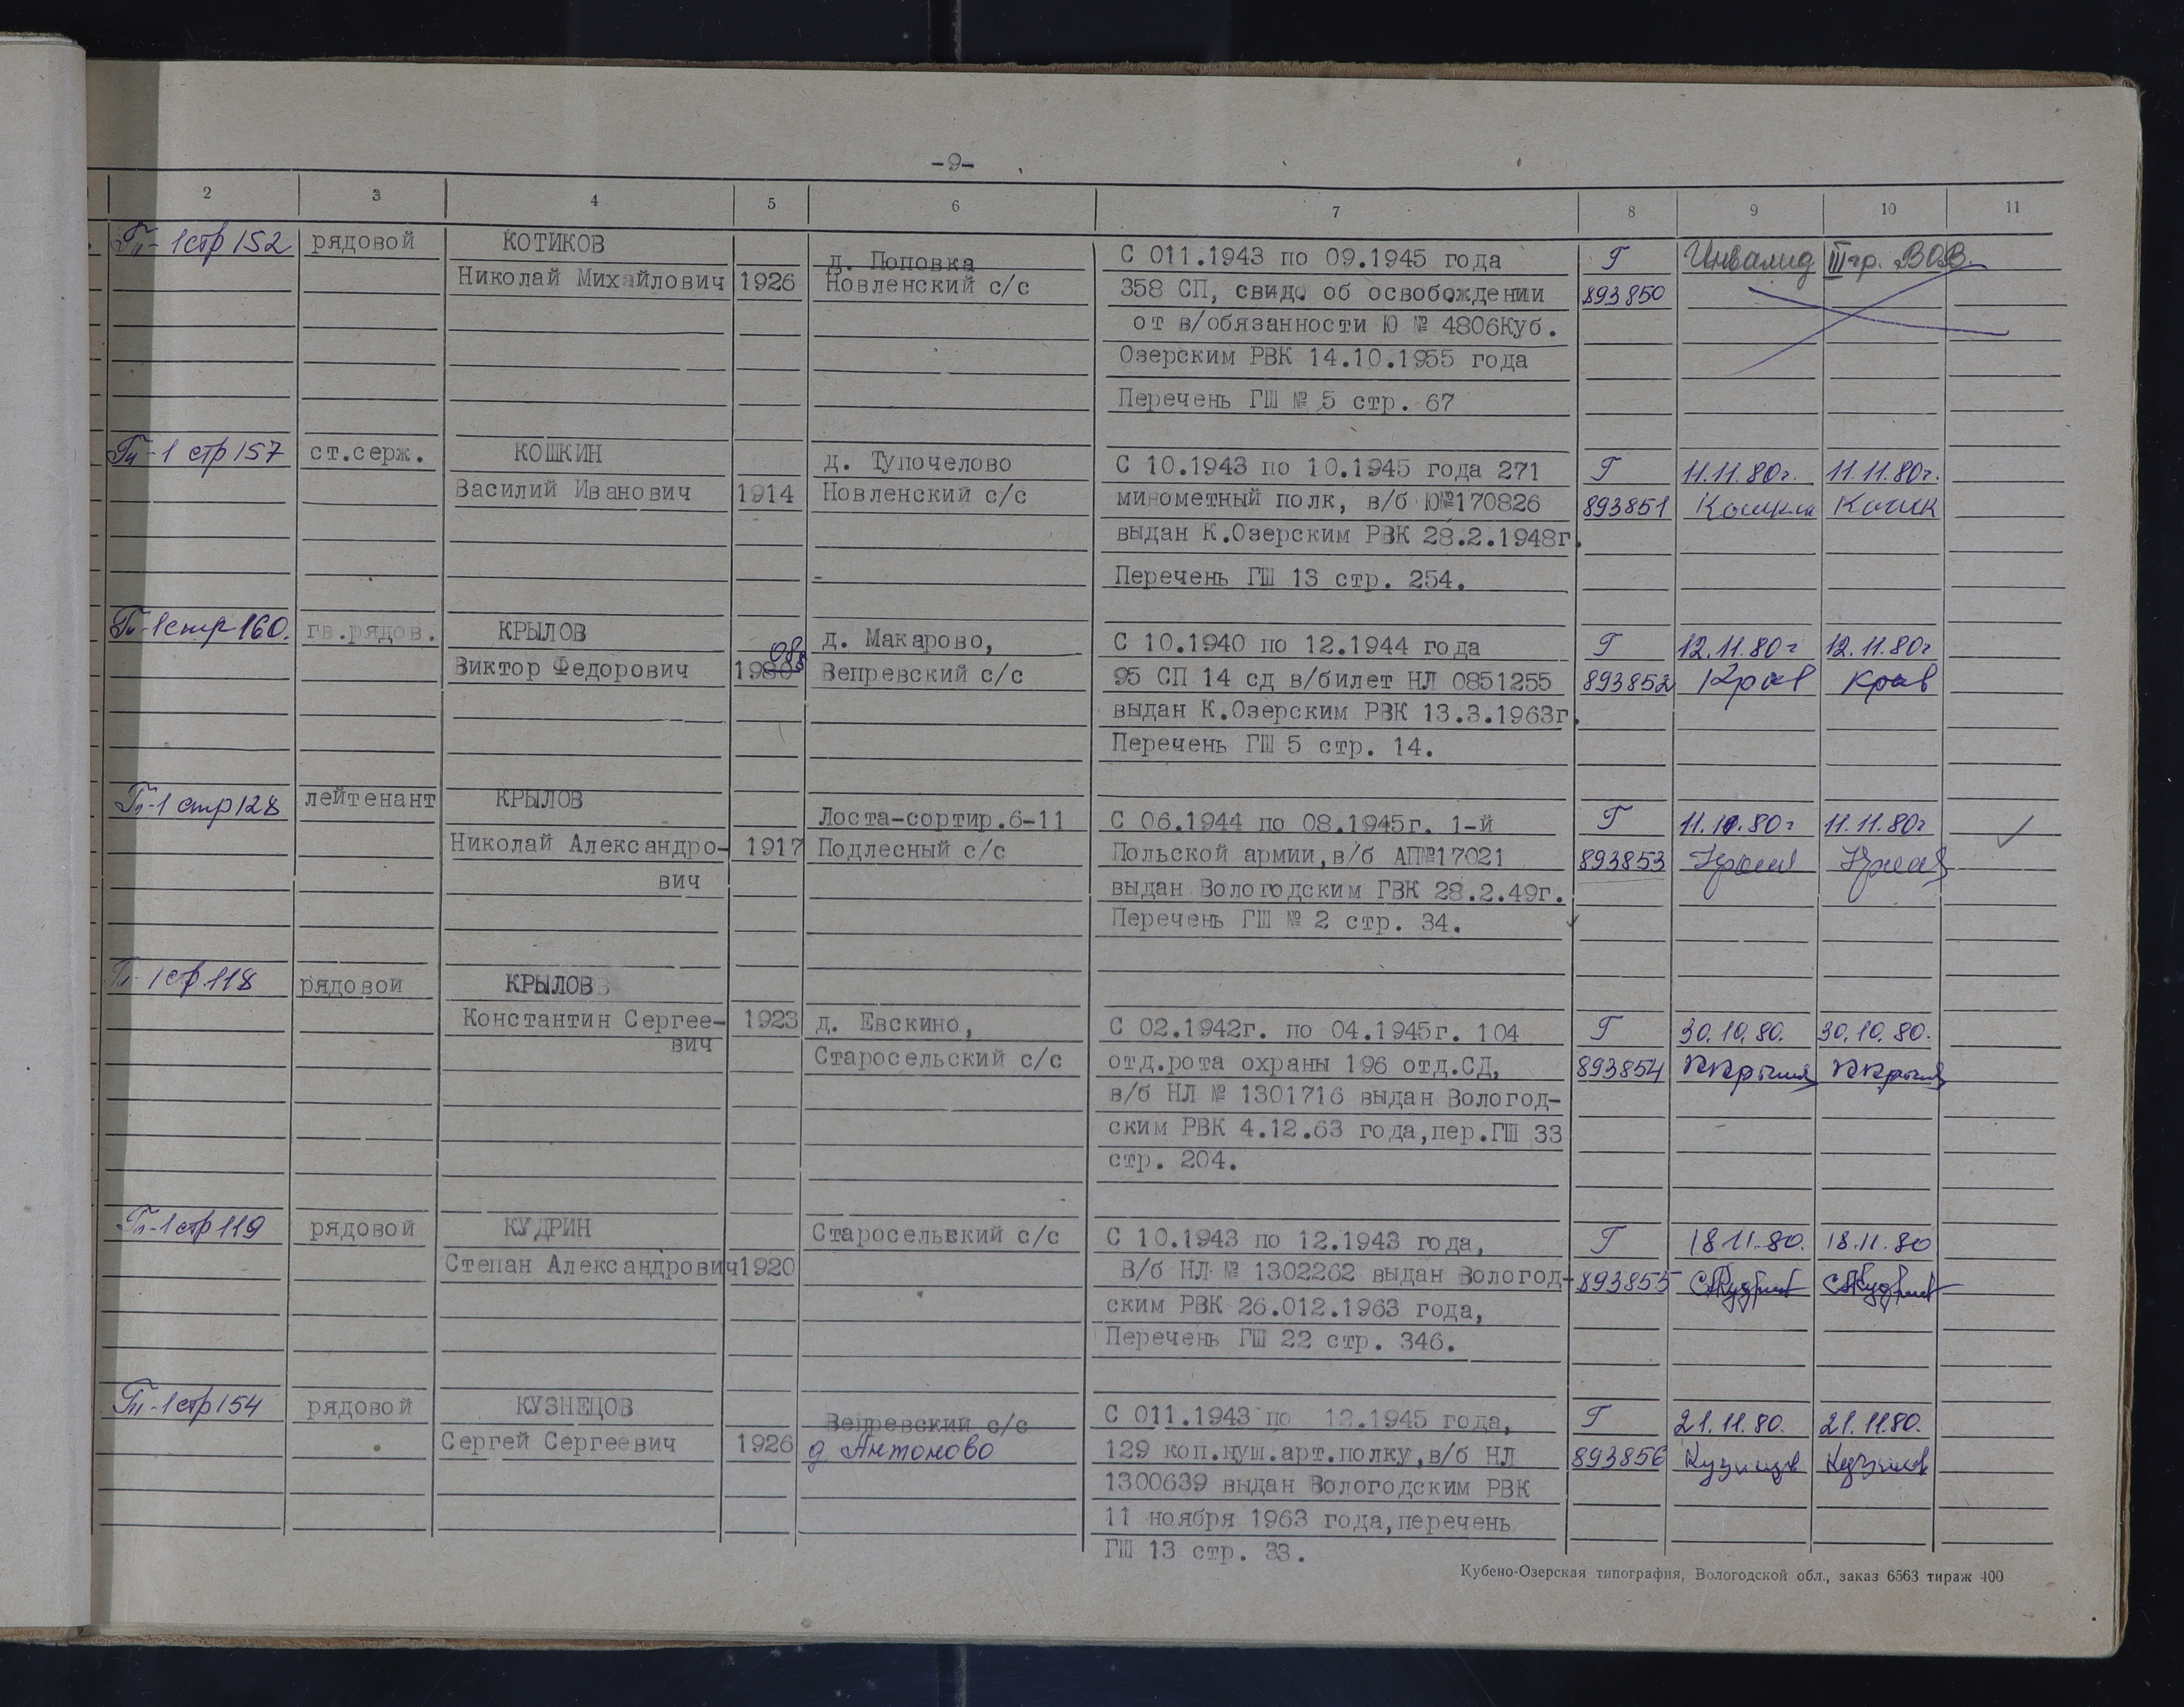 -9-
2 3 4 5 6 7 8 9 10 11
Гп-1 стр 152 рядовой КОТИКОВ д. Поповка С 011.1943 по 09.1945 года Г Инвалид III гр. ВОВ.
Николай Михайлович 1926 Новленский с/с 358 СП, свид. об освобождении 893850
от в/обязанности Ю № 4806Куб.
Озерским РВК 14.10.1955 года
Перечень ГШ № 5 стр. 67
Гп-1 стр 157 ст.серж. КОШКИН д. Тупочелово С 10.1943 по 10.1945 года 271 Г 11.11.80г. 11.11.80г.
Василий Иванович 1914 Новленский с/с минометный полк, в/б Ю№170826 893851
выдан К.Озерским РВК 28.2.1948г.
Перечень ГШ 13 стр. 254.
Гп-1 стр 160. гв.рядов. КРЫЛОВ д. Макарово, С 10.1940 по 12.1944 года Г 12.11.80г 12.11.80г
Виктор Федорович Вепревский с/с 95 СП 14 сд в/билет НЛ 0851255 893852
выдан К.Озерским РВК 13.3.1963г.
Перечень ГШ 5 стр. 14.
Гп-1 стр 128 лейтенант КРЫЛОВ Лоста-сортир.6-11 С 06.1944 по 08.1945г. 1-й Г 11.11.80г 11.11.80г
Николай Александро- 1917 Подлесный с/с Польской армии,в/б АП№17021 893853
вич выдан Вологодским ГВК 28.2.49г.
Перечень ГШ № 2 стр. 34.
Гп-1 стр.118 рядовой КРЫЛОВ
Константин Сергее- 1923 д. Евскино, С 02.1942г. по 04.1945г. 104 Г 30.10.80. 30.10.80.
вич Старосельский с/с отд.рота охраны 196 отд.СД, 893854
в/б НЛ № 1301716 выдан Вологод-
ским РВК 4.12.63 года,пер.ГШ 33
стр. 204.
Гп-1 стр 119 рядовой КУДРИН Старосельский с/с С 10.1943 по 12.1943 года, Г 18.11.80. 18.11.80
Степан Александрович 1920 В/б НЛ № 1302262 выдан Вологод- 893855
ским РВК 26.012.1963 года,
Перечень ГШ 22 стр. 346.
Гп-1 стр 154 рядовой КУЗНЕЦОВ Вепревский с/с С 011.1943 по 12.1945 года, Г 21.11.80. 21.11.80.
Сергей Сергеевич 1926 д Антоново 129 коп.пуш.арт.полку,в/б НЛ 893856
1300639 выдан Вологодским РВК
11 ноября 1963 года,перечень
ГШ 13 стр. 33.
Кубено-Озерская типография, Вологодской обл., заказ 6563 тираж 400